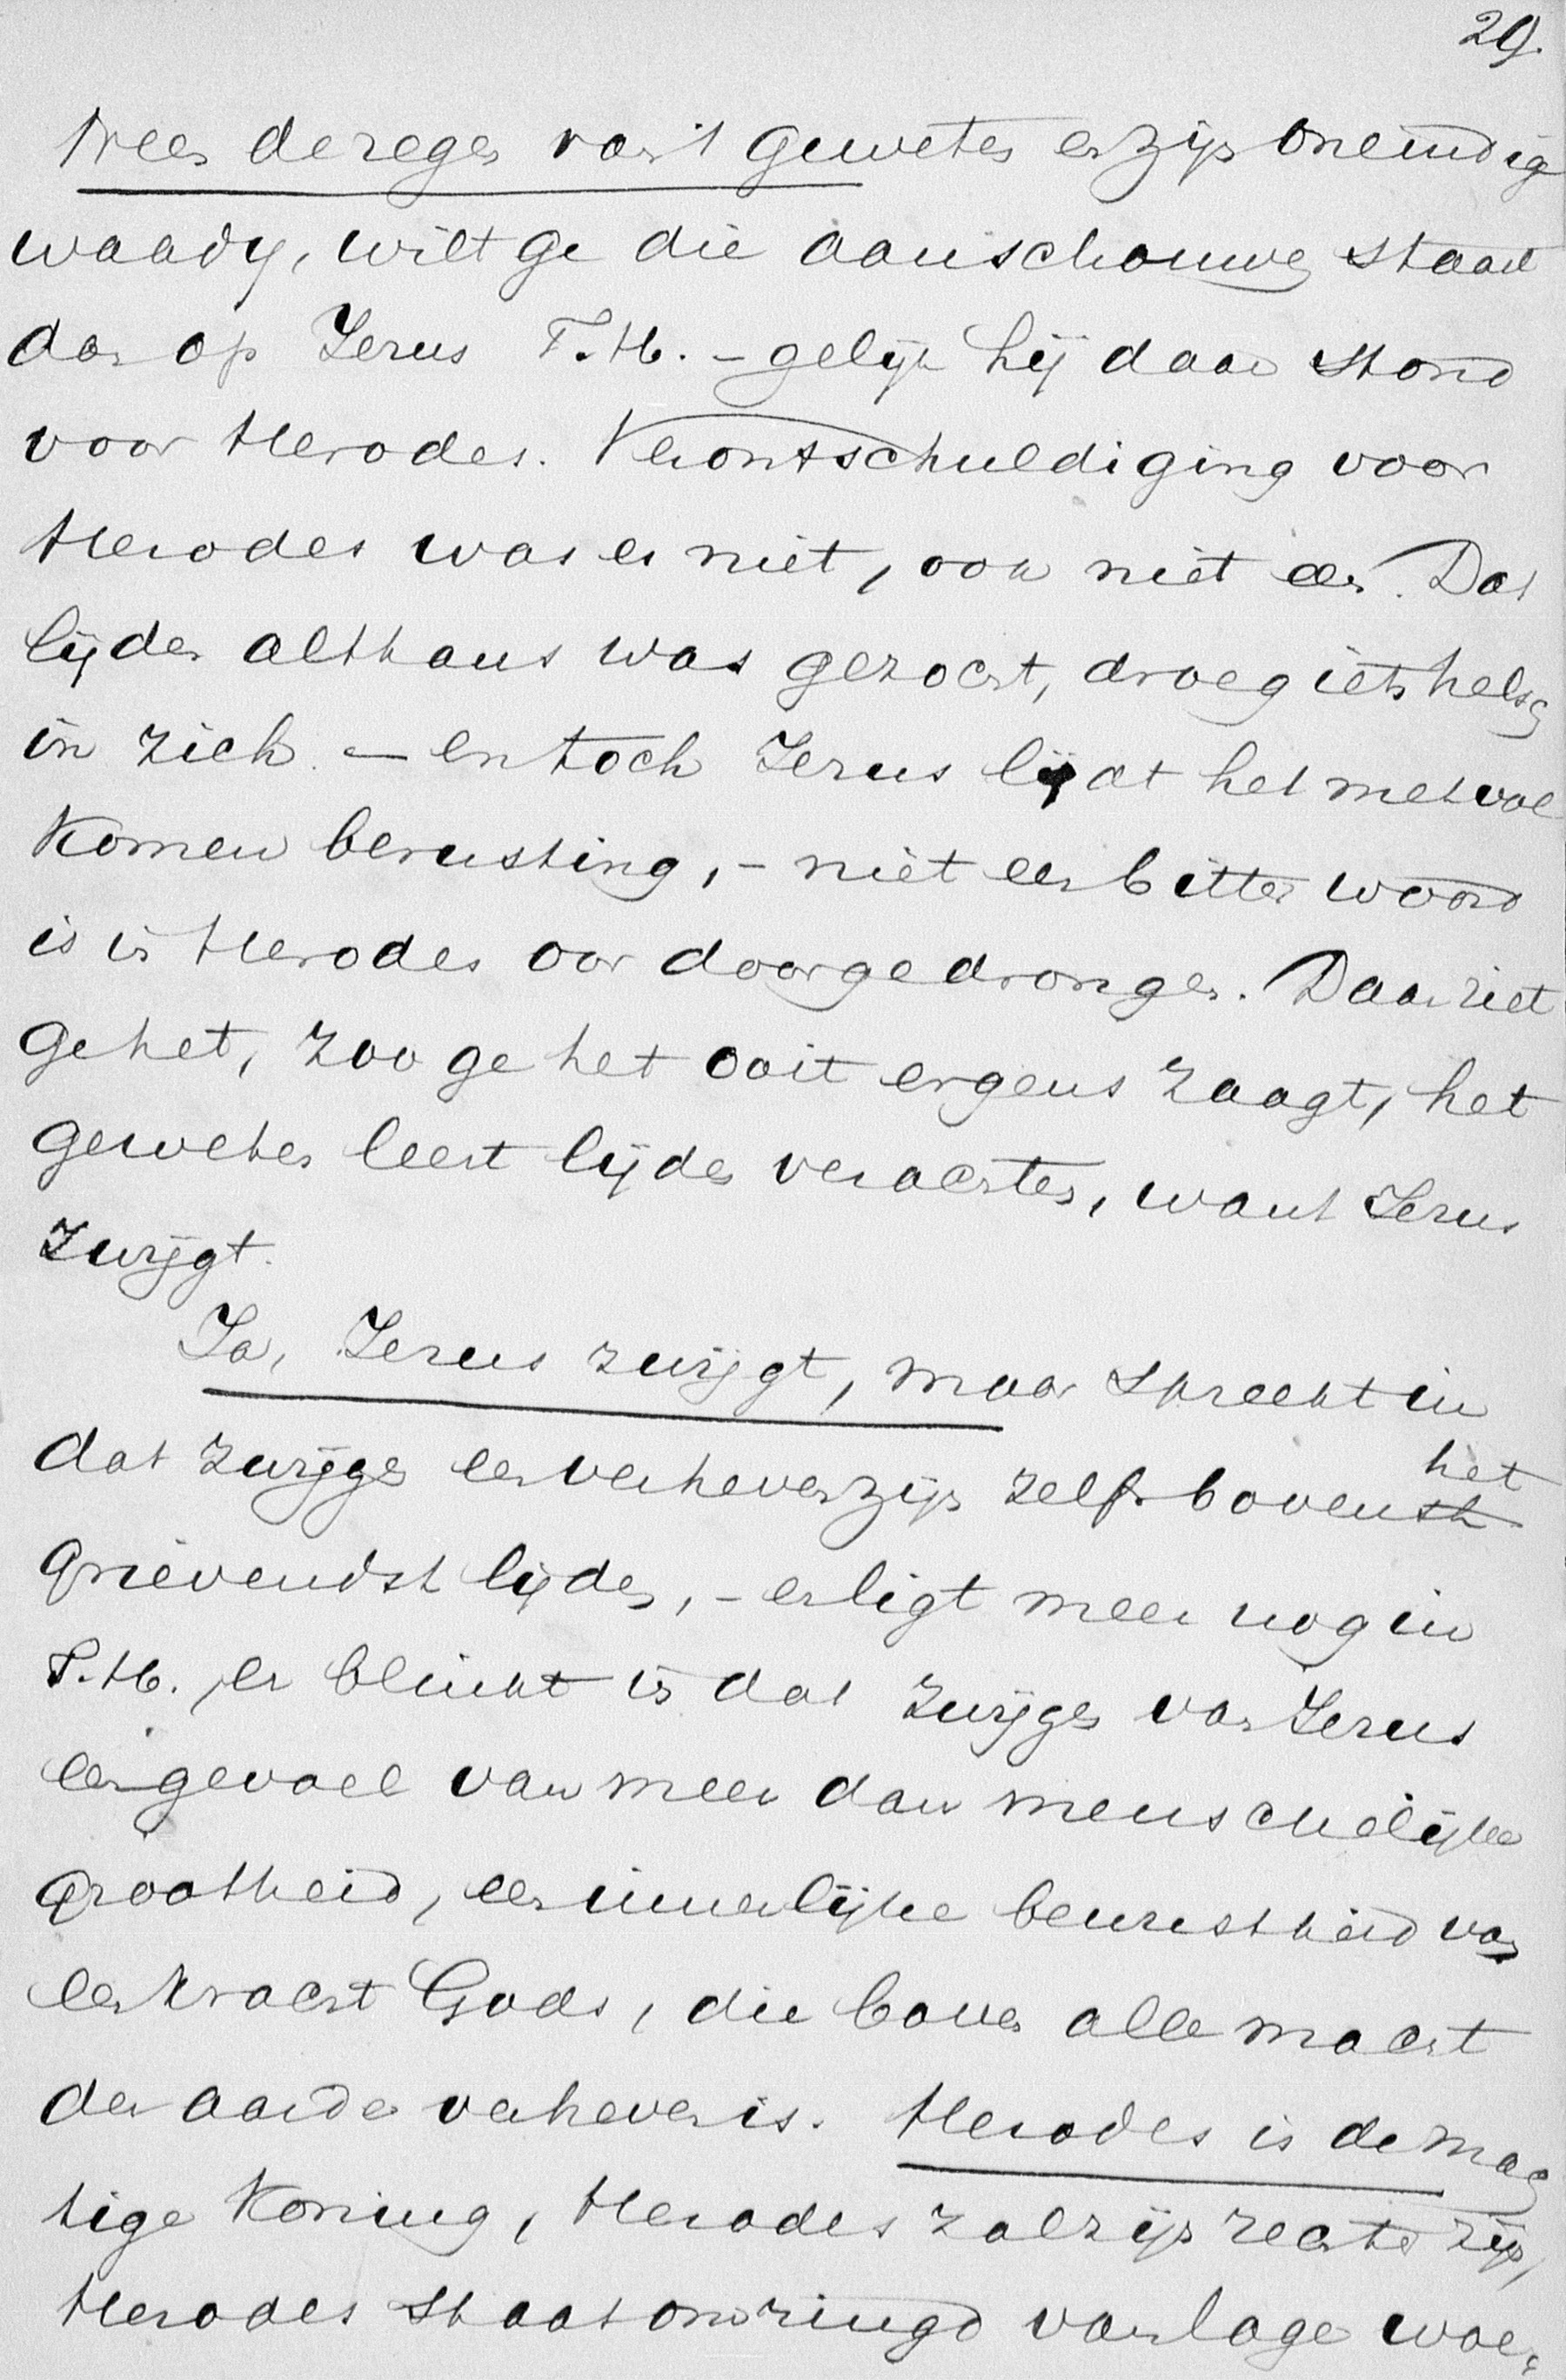 29.
Neen de zegen van 't geweten en zijn oneindig
waardij, wilt ge die aanschouwen staart
dan op Jezus T.H. – gelijk hij daar stond
voor Herodes. Verontschuldiging voor
Herodes was er niet, ook niet een. Dat
lijden althans was gezocht, droeg iets helsch
in zich – en toch Jezus lijdt het met vol
komen berusting, – niet een bitter woord
is in Herodes oor doorgedrongen. Daar ziet
ge het, zoo ge het ooit ergens zaagt, het
geweten leert lijden verachten, want Jezus
zwijgt.
Ja, Jezus zwijgt, maar spreekt in
het
dat zwijgen een verheven zijn zelfs boven
grievendst lijden, – er ligt meer nog in
T.H., er blinkt in dat zwijgen van Jezus
een gevoel van meer dan menschelijke
grootheid, een innerlijke bewustheid van
een kracht Gods, die boven alle macht
der aarde verheven is. Herodes is de mach
tige Koning, Herodes zal zijn rechter zijn,
Herodes staat omringd van lage